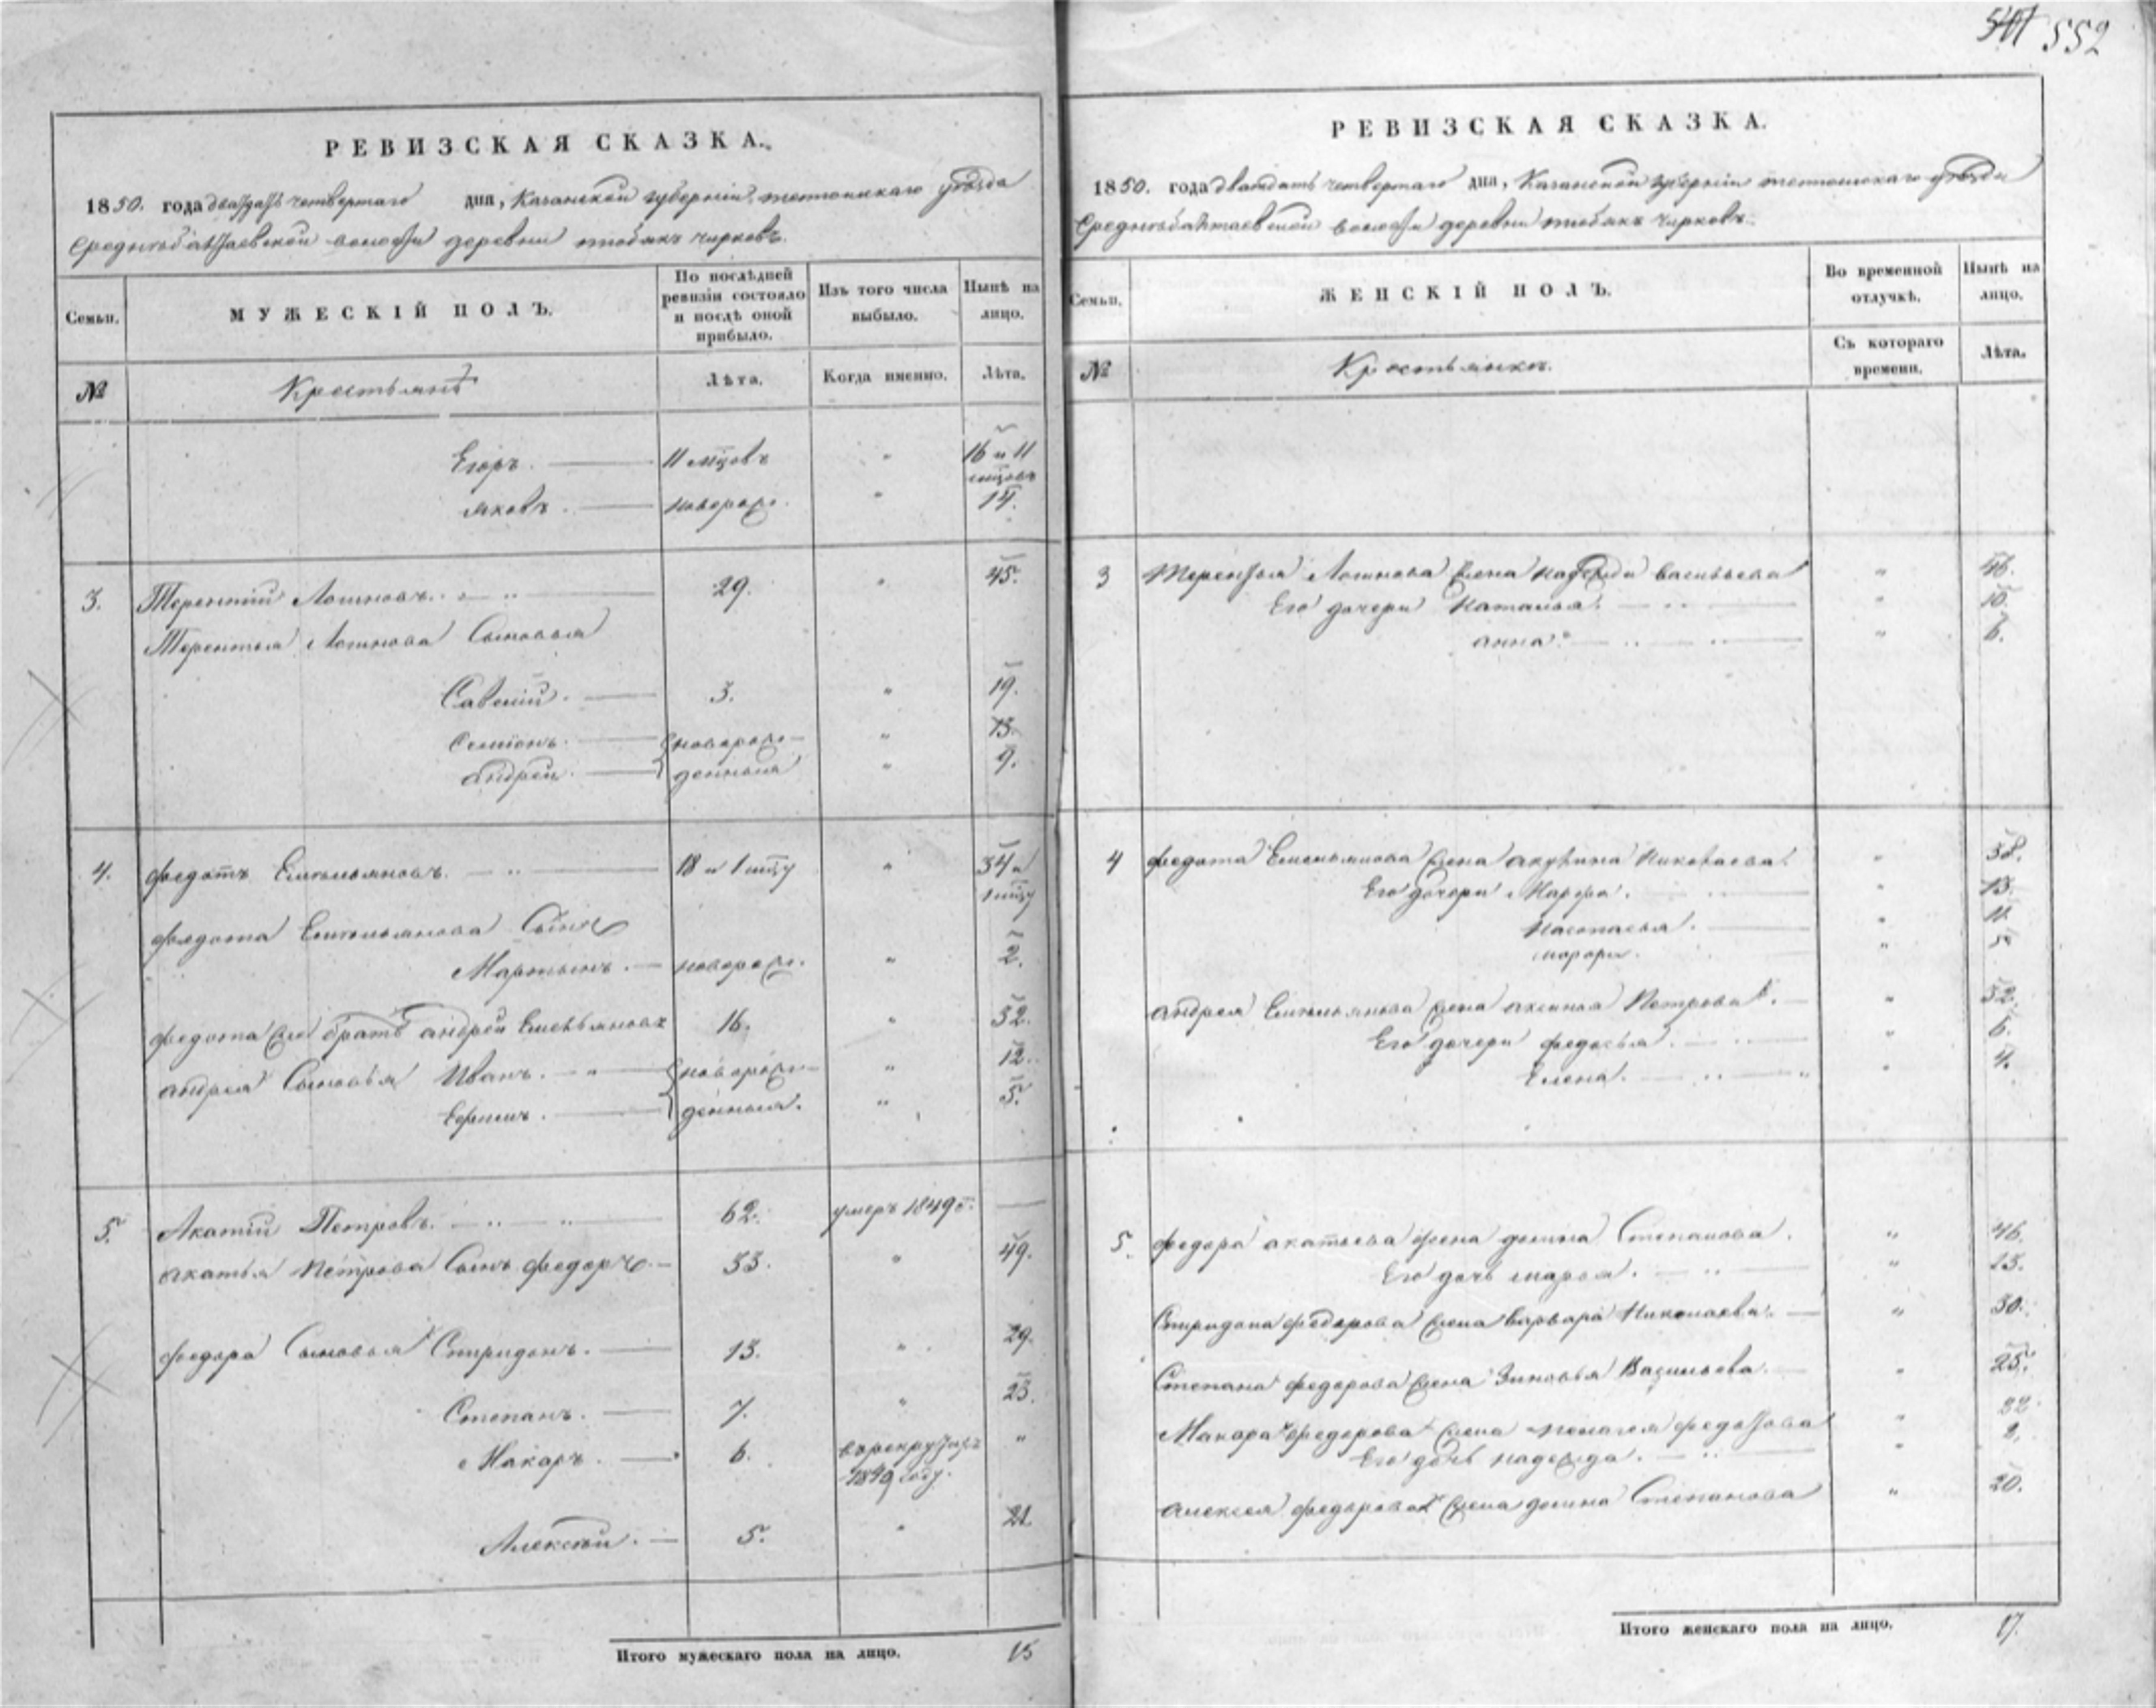 541 552
РЕВИЗСКАЯ СКАЗКА.
1850. года двадцать четвертаго дня, Казанской губернии тетюшскаго уѣзда
волости деревни тюбякъ чирковъ.
Семьи.
МУЖЕСКІЙ ПОЛЪ.
По послѣдней ревизіи состояло и послѣ оной прибыло.
Изъ того числа выбыло.
Нынѣ на лицо.
№
Крестьянъ
Лѣта.
Когда именно.
Лѣта.
Егоръ. 11 мцовъ " 16 и 11 мцовъ
яковъ. новорож. " 14.
3. Терентий Логиновъ. 29. " 45.
Терентья Логинова Сыновья
Савелий. 3. " 19.
Семионъ. новорож- " 13.
андрей. денныя " 9.
4. федотъ Емельяновъ. 18 и 1 мцу " 34 и 1 мцу
федота Емельянова Сынъ
Мартынъ. новорож. " 2.
федота братъ андрей Емельяновъ 16. " 32.
андрея Сыновья Иванъ. новорож- " 12.
Ефимъ. денныя. " 5.
5. Акатий Петровъ. 62. умеръ 1849 г.
акатья петрова Сынъ федоръ 33. " 49.
федора Сыновья Спиридонъ. 13. " 29.
Степанъ. 7. " 23.
Макаръ. 6. 1849 году. "
Алексѣй. 5. " 21.
Итого мужескаго пола на лицо. 15
РЕВИЗСКАЯ СКАЗКА.
1850. года двадцать четвертаго дня, Казанской губернии тетюшскаго уѣзда
волости деревни тюбякъ чирковъ.
Семьи.
ЖЕНСКІЙ ПОЛЪ.
Во временной отлучкѣ.
Нынѣ на лицо.
№
Крестьянки.
Съ котораго времени.
Лѣта.
3 Терентья Логинова жена надежда васильева " 46.
Его дочери Наталья. " 10.
анна. " 6.
4 федота Емельянова жена акулина Николаева. " 38.
Его дочери Марфа. " 13.
Настасья. " 11.
марфа. " 5
андрея Емельянова жена аксинья Петрова. " 32.
Его дочери федосья. " 6.
Елена. " 4.
5. федора акатьева жена домна Степанова. " 46.
Его дочь марья. " 13.
Спиридона федорова жена варвара Николаева. " 30.
Степана федорова жена Зиновья Васильева. " 25.
Макара федорова жена пелагея федотова " 22.
Его дочь надежда. " 2.
алексея федорова жена домна Степанова " 20.
Итого женскаго пола на лицо. 17.